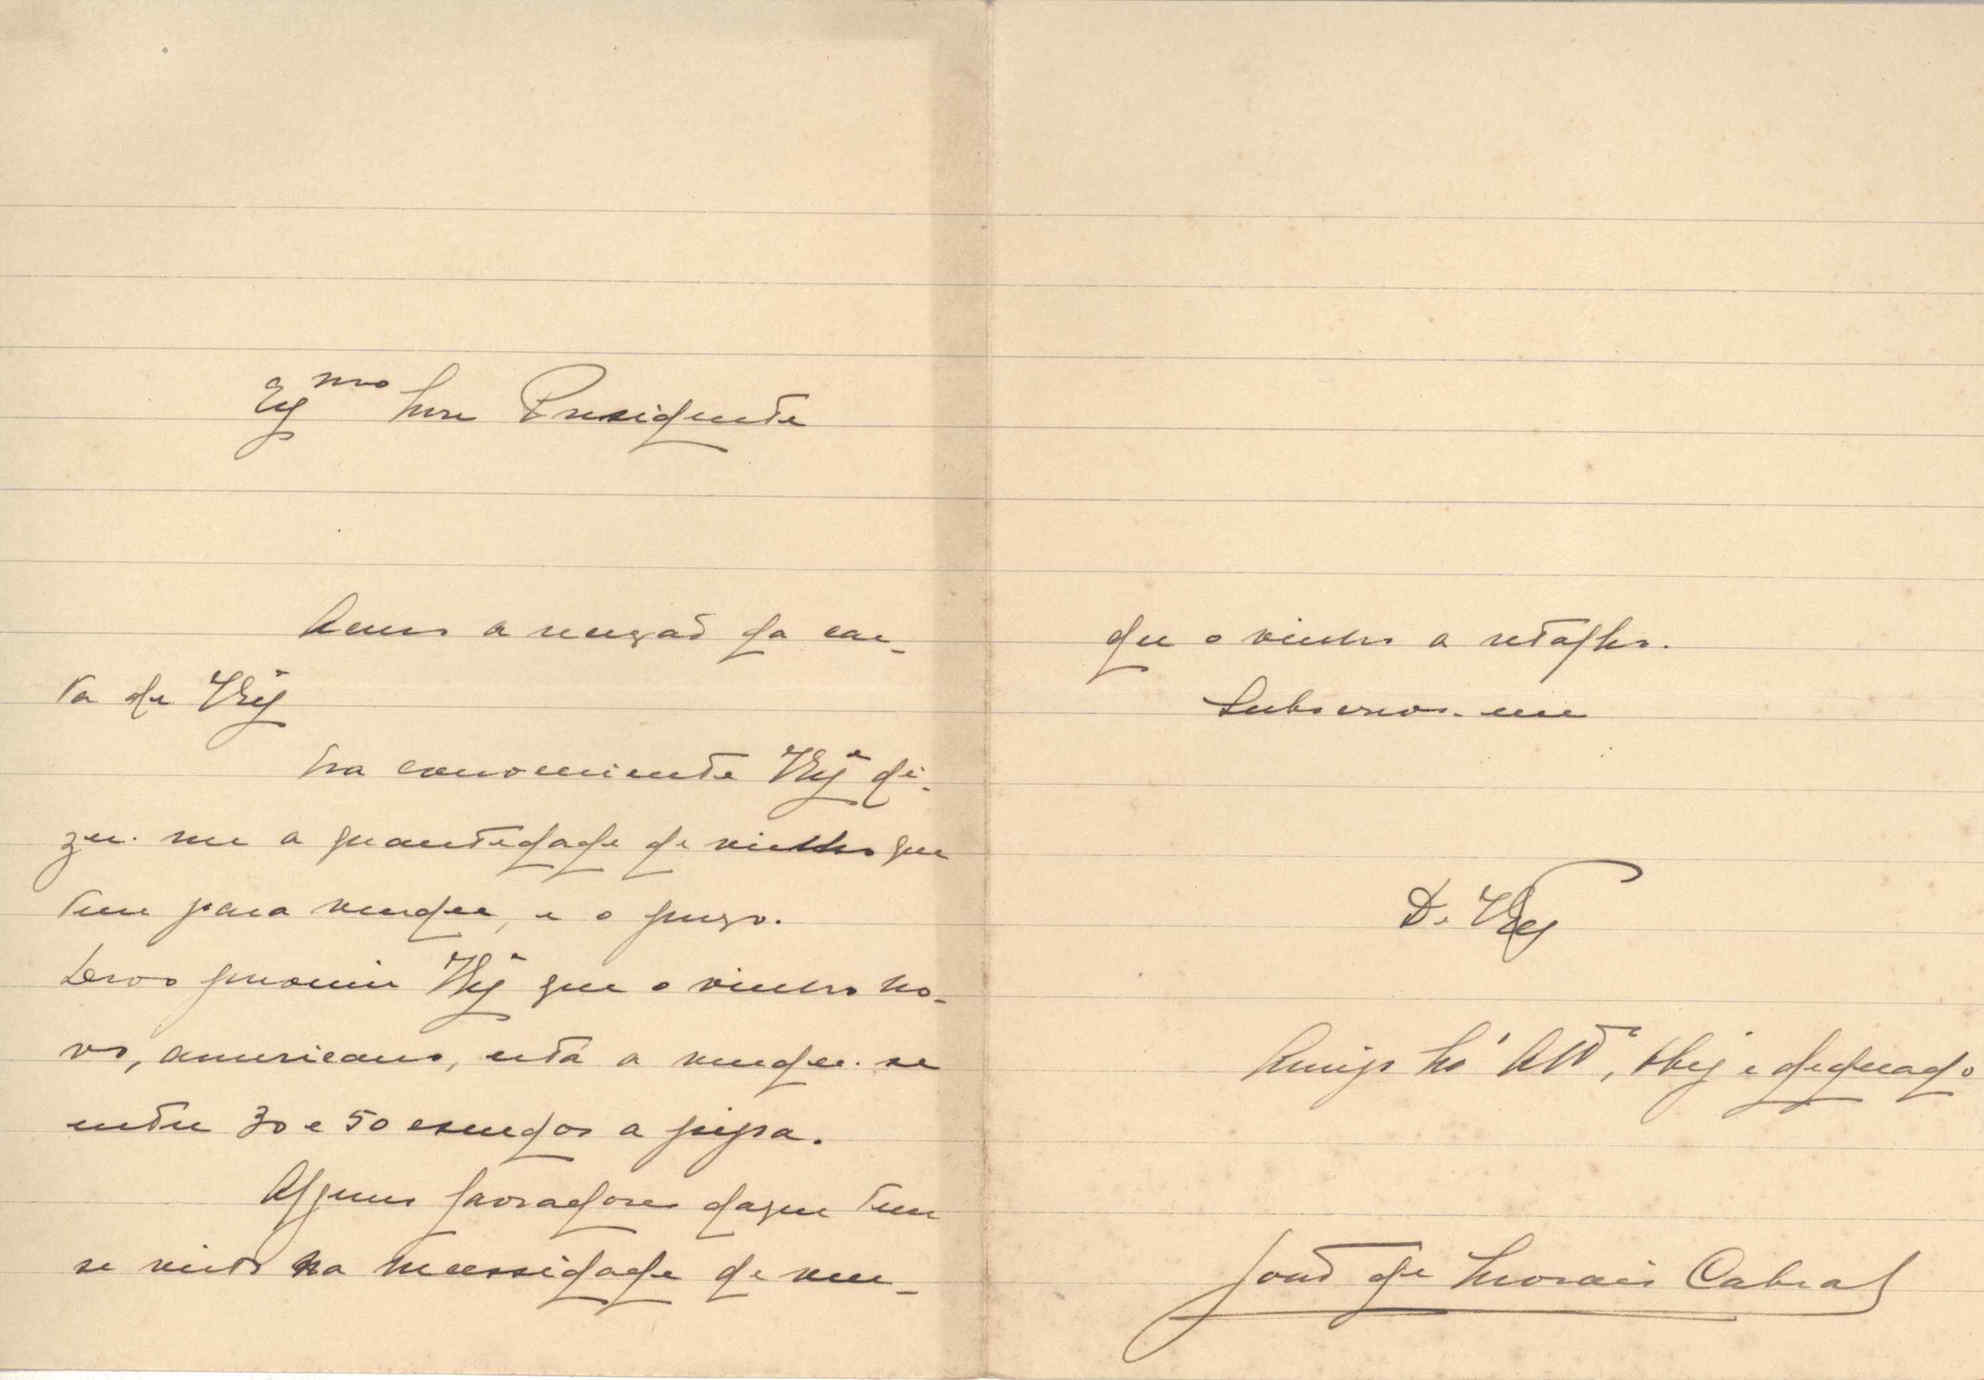 Exmo Snr Presidente
Acuso a recepção da car-
ta de VExª
Era conveniente VExª di-
zer-me a quantidade de vinho que
tem para vender, e o preço.
Devo prevenir VExª que o vinho no-
vo, americano, está a vender-se
entre 30 e 50 escudos a pipa.
Alguns lavradores daqui tem
se visto na necessidade de ven-
der o vinho a retalho.
Subscrevo-me
De VEx
Amigo Attº, Obg e dedicado
João de Morais Cabral